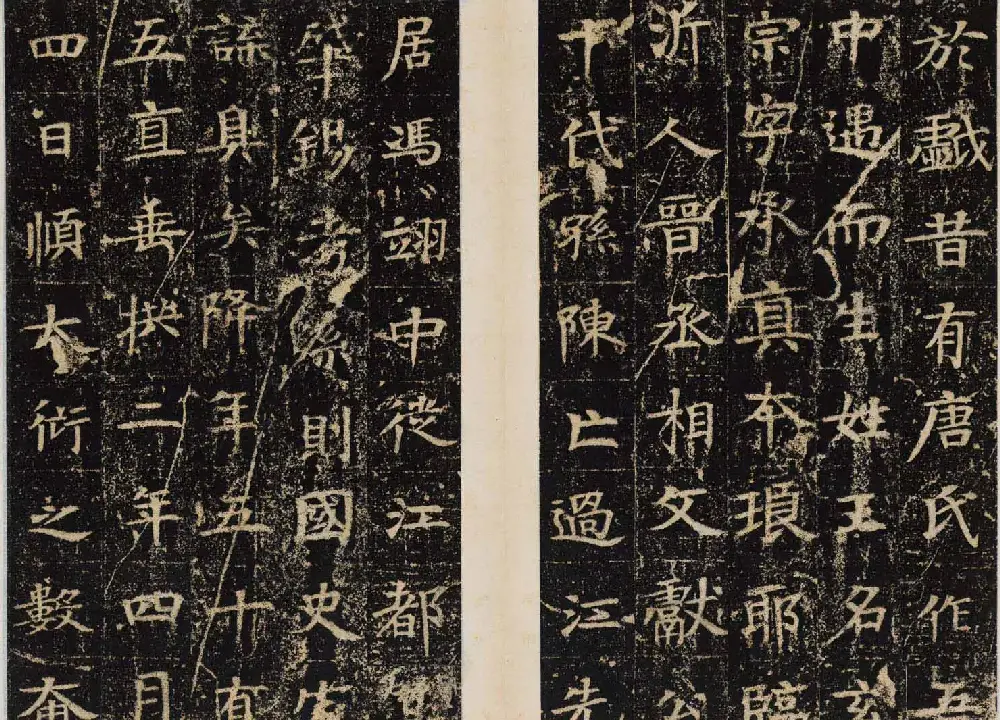 於戲昔有唐氏作五
中遇而生姓王名玄
宗字承真本琅耶臨
沂人晉丞相文獻公
十代孫陳亡過江先
居馮翊中從江都
華錫考系則國史家
諜具矣降年五十有
五直垂拱二年四月
四日順大衍之數奄